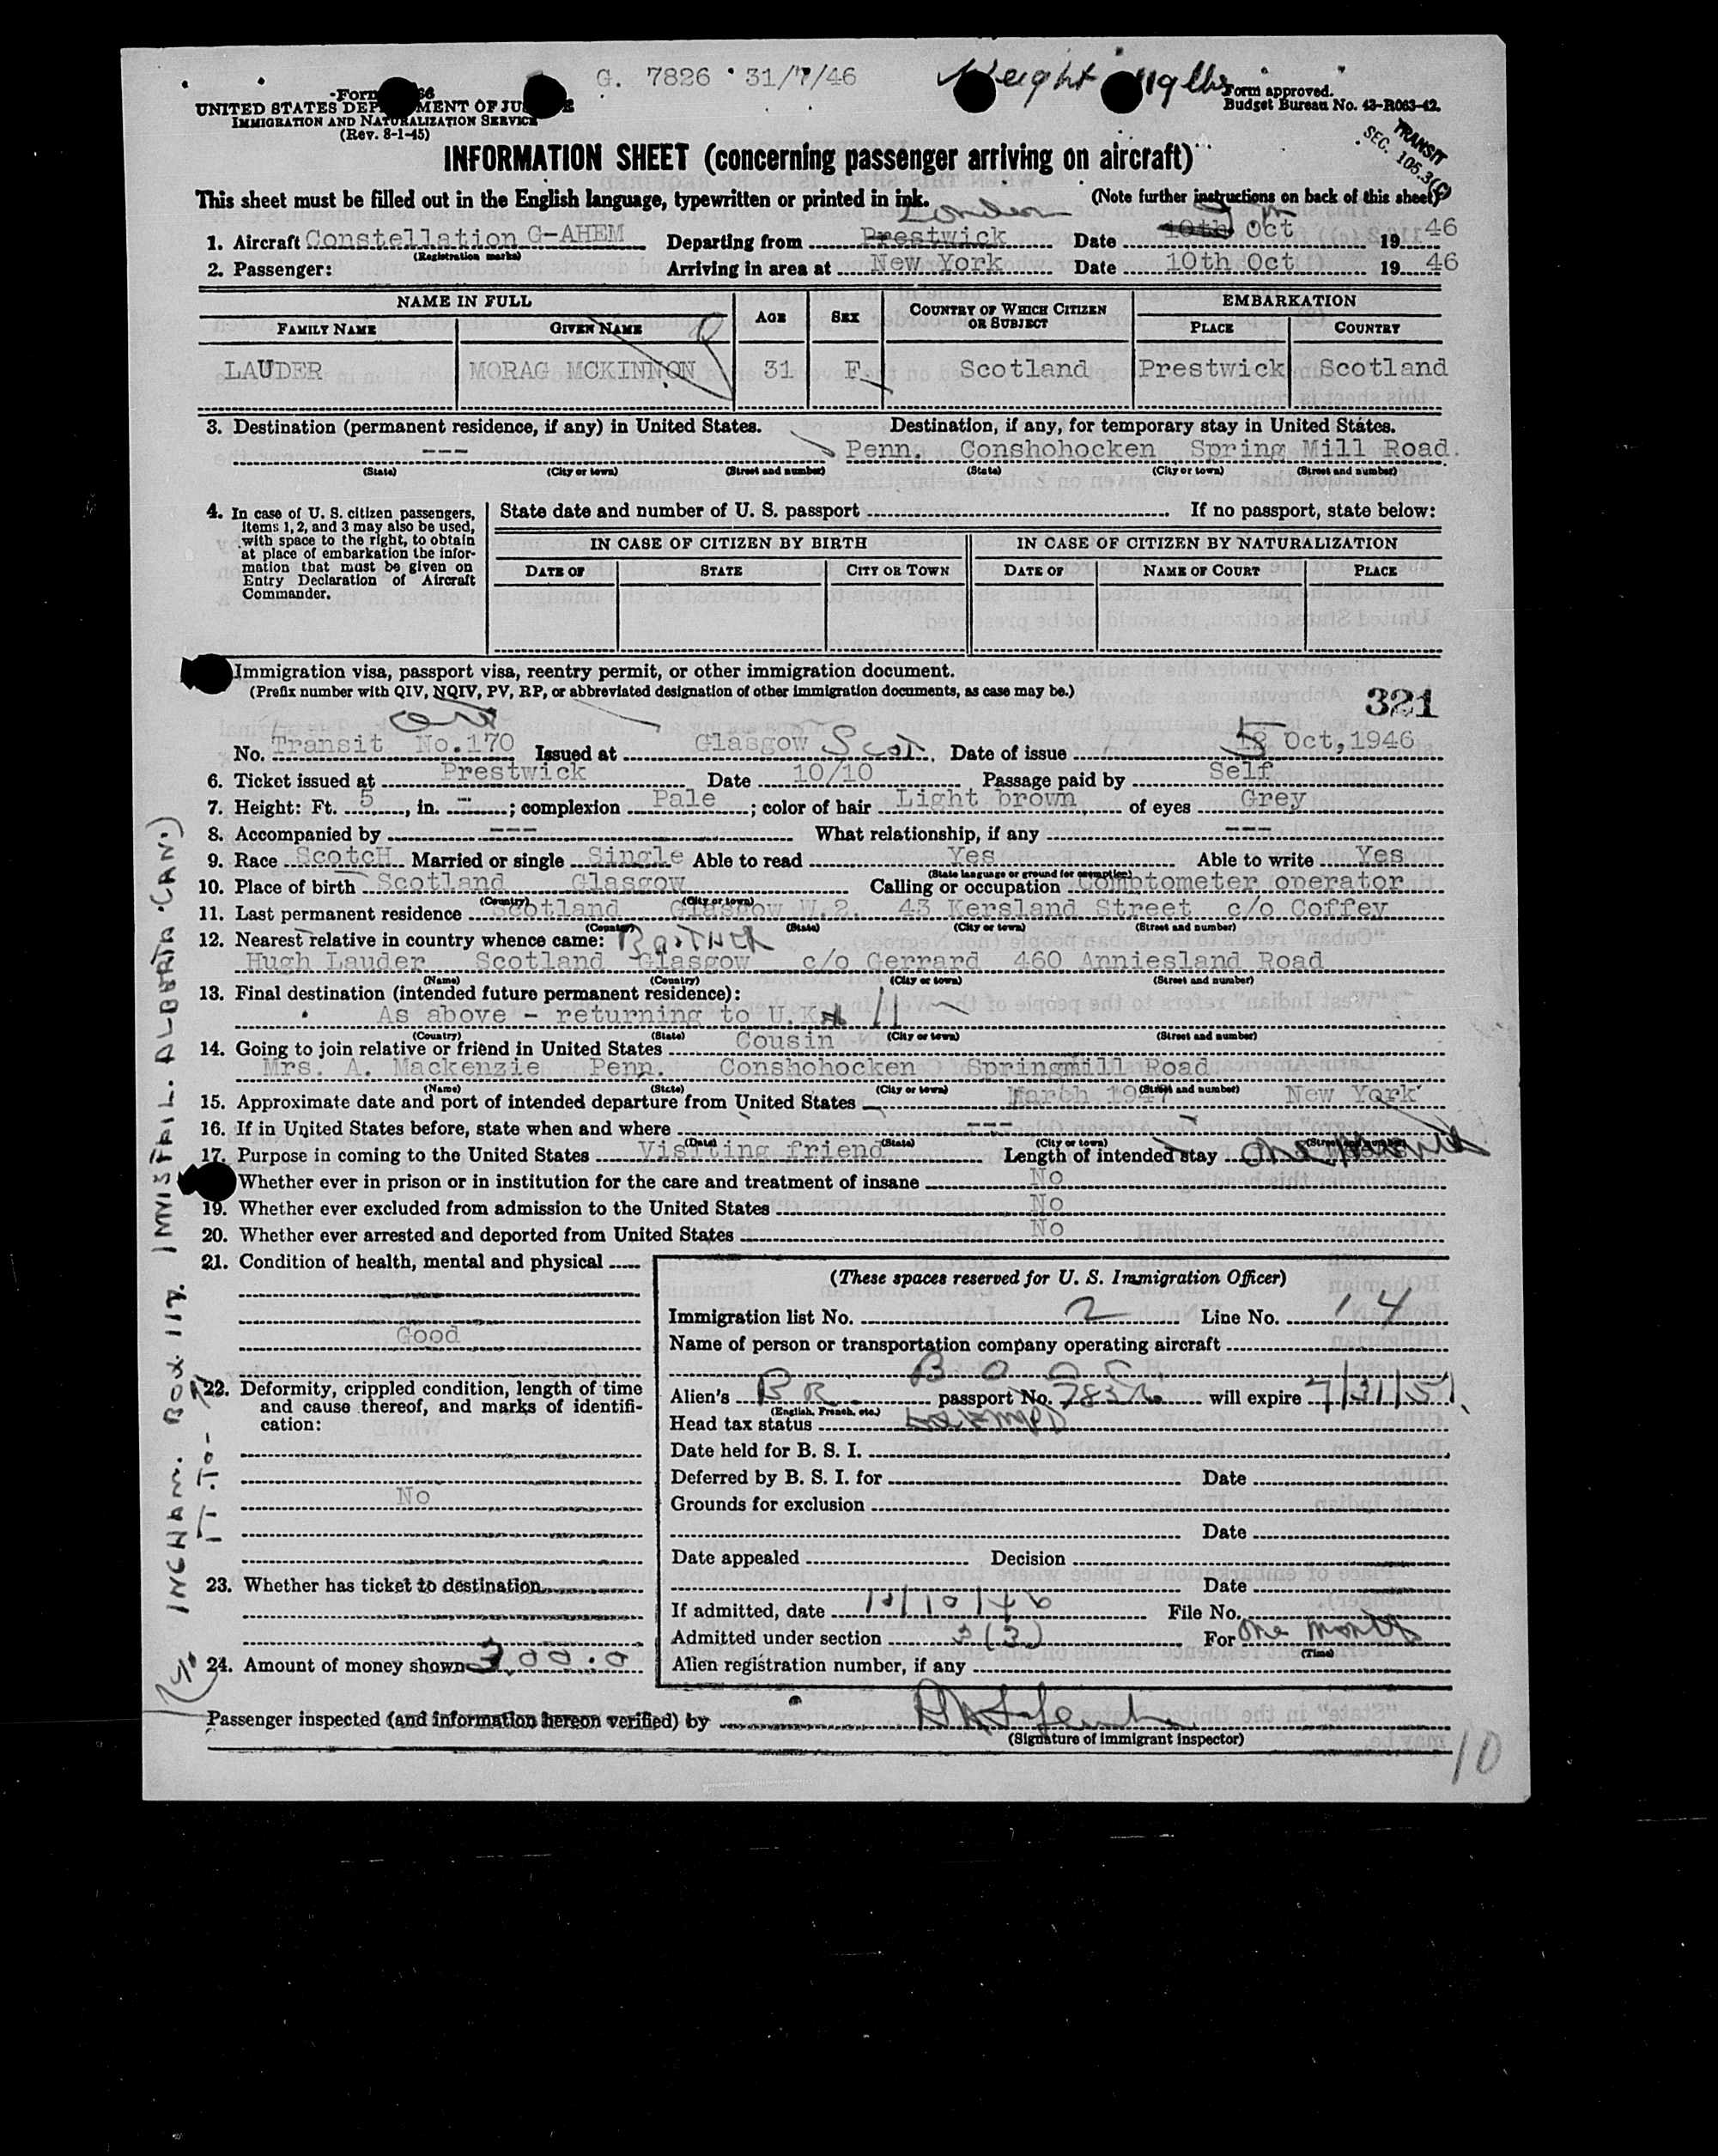 G. 7826 31/7/46 Weight 119 lbs
Form
UNITED STATES DEPARTMENT OF JUSTICE
IMMIGRATION AND NATURALIZATION SERVICE
(Rev. 8-1-45)
Form approved.
Budget Bureau No. 43-R063-42.
TRANSIT
SEC. 105.3(C)
INFORMATION SHEET (concerning passenger arriving on aircraft)
This sheet must be filled out in the English language, typewritten or printed in ink. (Note further instructions on back of this sheet)
London
1. Aircraft Constellation G-AHEM Departing from Prestwick Date 10th Oct 1946
(Registration marks)
2. Passenger: Arriving in area at New York Date 10th Oct 1946
NAME IN FULL AGE SEX COUNTRY OF WHICH CITIZEN OR SUBJECT EMBARKATION
FAMILY NAME GIVEN NAME PLACE COUNTRY
LAUDER MORAG MCKINNON 31 F. Scotland Prestwick Scotland
3. Destination (permanent residence, if any) in United States. Destination, if any, for temporary stay in United States.
--- Penn. Conshohocken Spring Mill Road.
(State) (City or town) (Street and number) (State) (City or town) (Street and number)
4. In case of U. S. citizen passengers, items 1, 2, and 3 may also be used, with space to the right, to obtain at place of embarkation the information that must be given on Entry Declaration of Aircraft Commander.
State date and number of U. S. passport If no passport, state below:
IN CASE OF CITIZEN BY BIRTH IN CASE OF CITIZEN BY NATURALIZATION
DATE OF STATE CITY OR TOWN DATE OF NAME OF COURT PLACE
Immigration visa, passport visa, reentry permit, or other immigration document.
(Prefix number with QIV, NQIV, PV, RP, or abbreviated designation of other immigration documents, as case may be.)
321
No. Transit No.170 Issued at Glasgow Scot. Date of issue 5 Oct, 1946
6. Ticket issued at Prestwick Date 10/10 Passage paid by Self
7. Height: Ft. 5, in. -; complexion Pale; color of hair Light brown of eyes Grey
8. Accompanied by --- What relationship, if any ---
9. Race ScotcH Married or single Single Able to read Yes Able to write Yes
(State language or ground for exemption)
10. Place of birth Scotland Glasgow Calling or occupation Comptometer operator
(Country) (City or town)
11. Last permanent residence Scotland Glasgow W.2. 43 Kersland Street c/o Coffey
(Country) (State) (City or town) (Street and number)
12. Nearest relative in country whence came:
Hugh Lauder Scotland Glasgow c/o Gerrard 460 Anniesland Road
(Name) (Country) (City or town) (Street and number)
13. Final destination (intended future permanent residence):
As above - returning to U.K.
(Country) (State) (City or town) (Street and number)
14. Going to join relative or friend in United States Cousin
Mrs. A. Mackenzie Penn. Conshohocken Springmill Road
(Name) (State) (City or town) (Street and number)
15. Approximate date and port of intended departure from United States March 1947 New York
16. If in United States before, state when and where ---
(Date) (State) (City or town) (Street and number)
17. Purpose in coming to the United States Visiting friend Length of intended stay One month
Whether ever in prison or in institution for the care and treatment of insane No
19. Whether ever excluded from admission to the United States No
20. Whether ever arrested and deported from United States No
21. Condition of health, mental and physical
Good
22. Deformity, crippled condition, length of time and cause thereof, and marks of identification:
No
23. Whether has ticket to destination
24. Amount of money shown 300.0
(These spaces reserved for U. S. Immigration Officer)
Immigration list No. 2 Line No. 14
Name of person or transportation company operating aircraft
B O A C
Alien's BR passport No. 7826 will expire 7/31/51
(English, French, etc.)
Head tax status
Date held for B. S. I.
Deferred by B. S. I. for Date
Grounds for exclusion
Date
Date appealed Decision
Date
If admitted, date 10/10/46 File No.
Admitted under section 3(3) For One month
(Time)
Alien registration number, if any
Passenger inspected (and information hereon verified) by
(Signature of immigrant inspector)
10
INGHAM. BOX 112. INNISFAIL. ALBERTA. (CAN.)